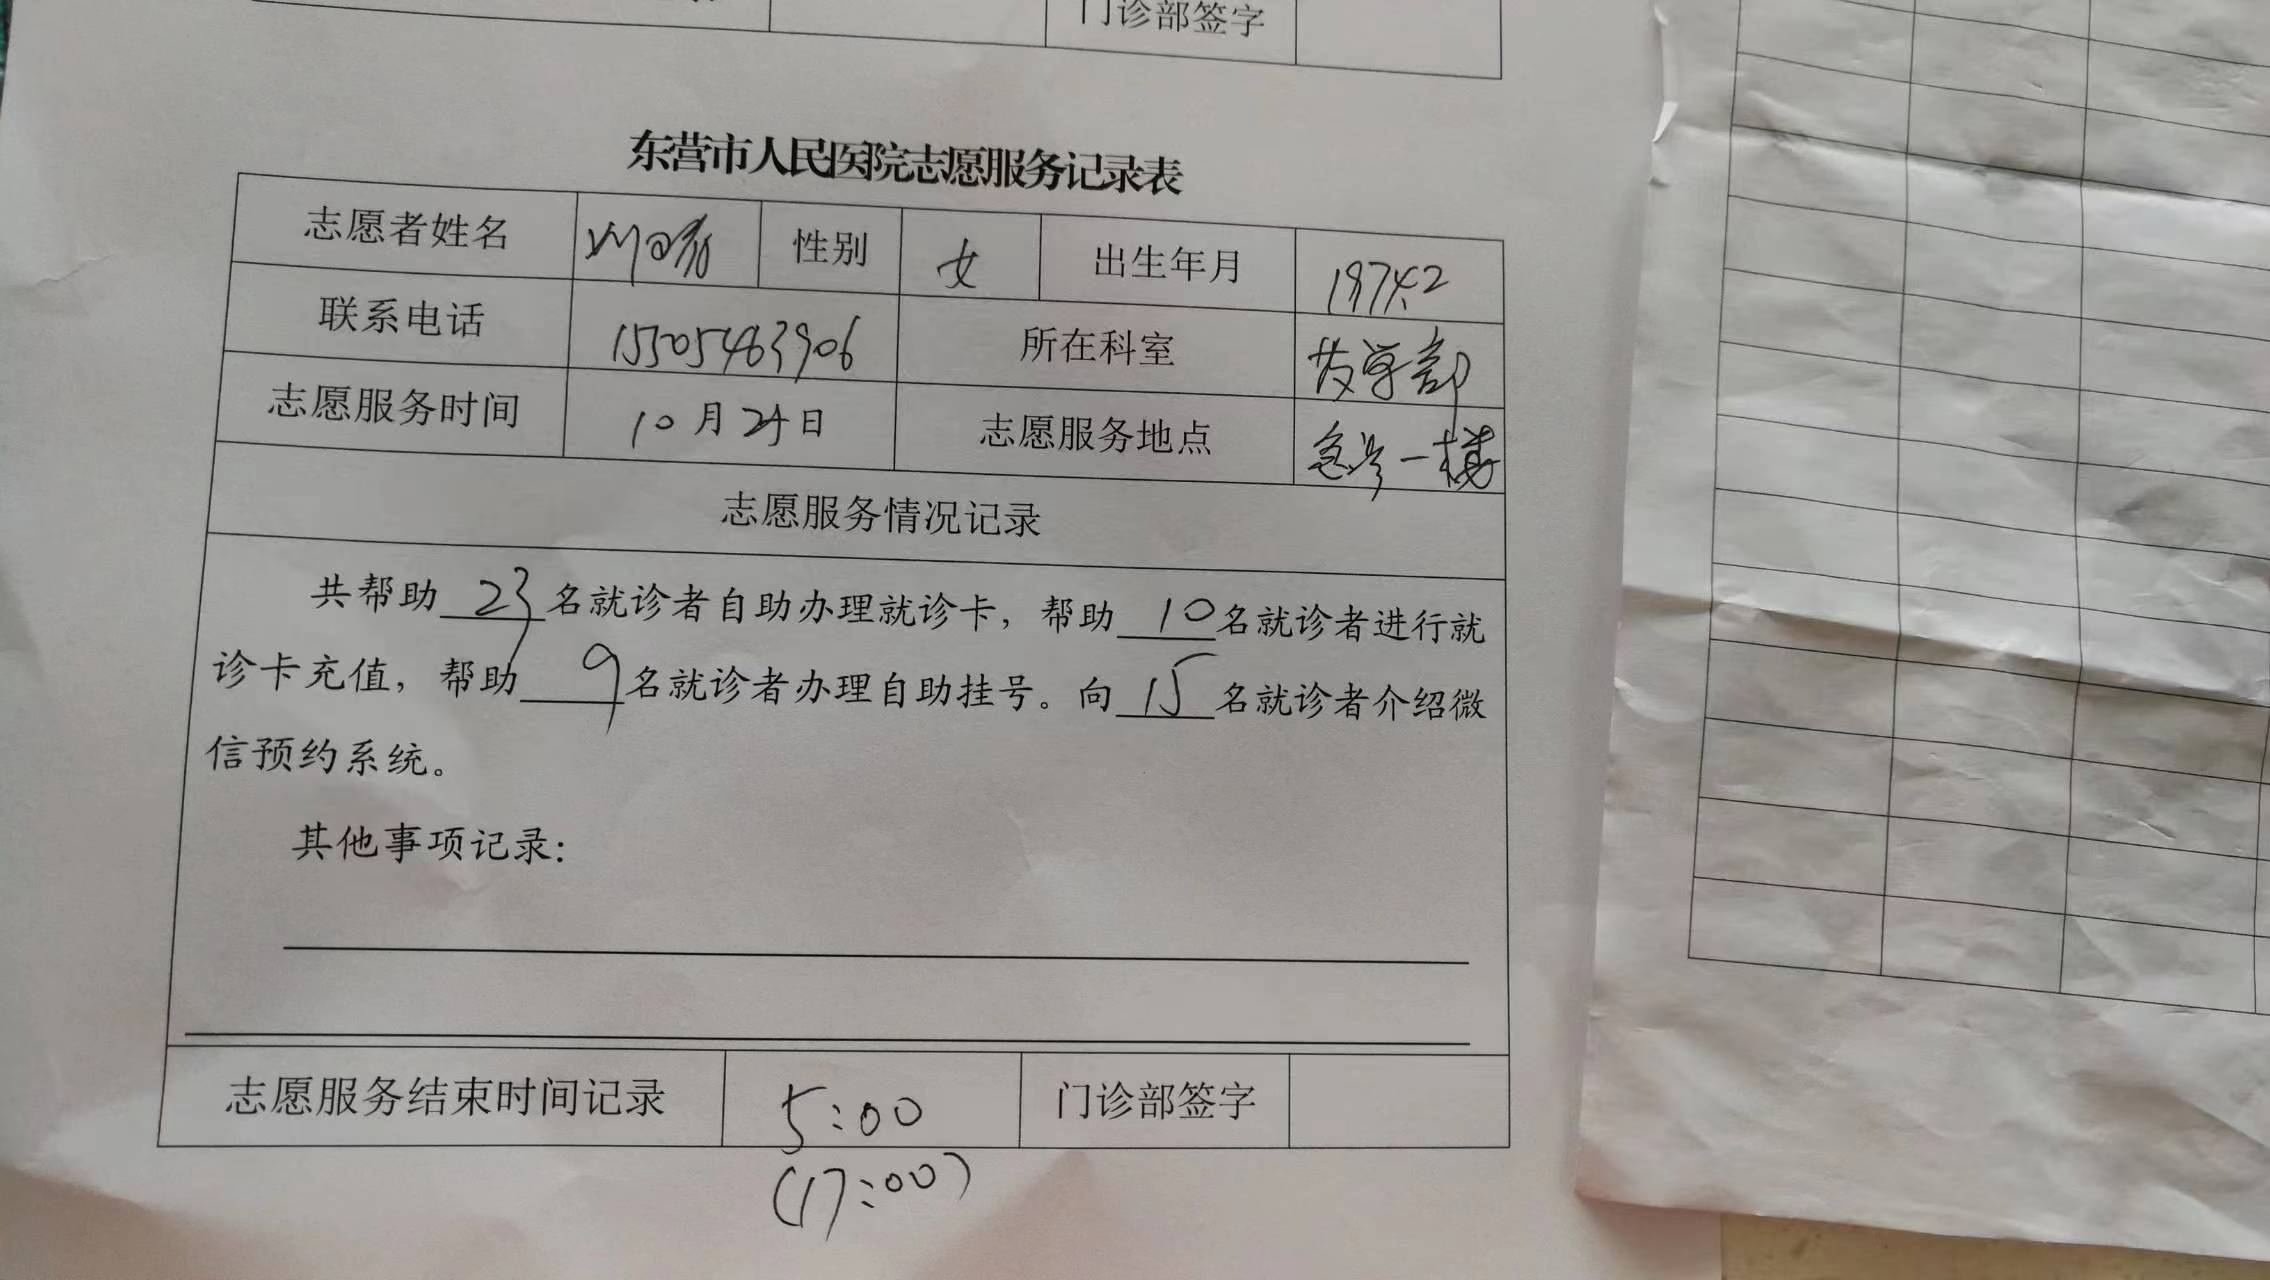 门诊部签字
东营市人民医院志愿服务记录表
志愿者姓名 性别 女 出生年月 1974.2
联系电话 15505483906 所在科室
志愿服务时间 10月24日 志愿服务地点 急诊一楼
志愿服务情况记录
共帮助 23 名就诊者自助办理就诊卡，帮助 10 名就诊者进行就
诊卡充值，帮助 9 名就诊者办理自助挂号。向 15 名就诊者介绍微
信预约系统。
其他事项记录：
志愿服务结束时间记录 5:00 门诊部签字
(17:00)